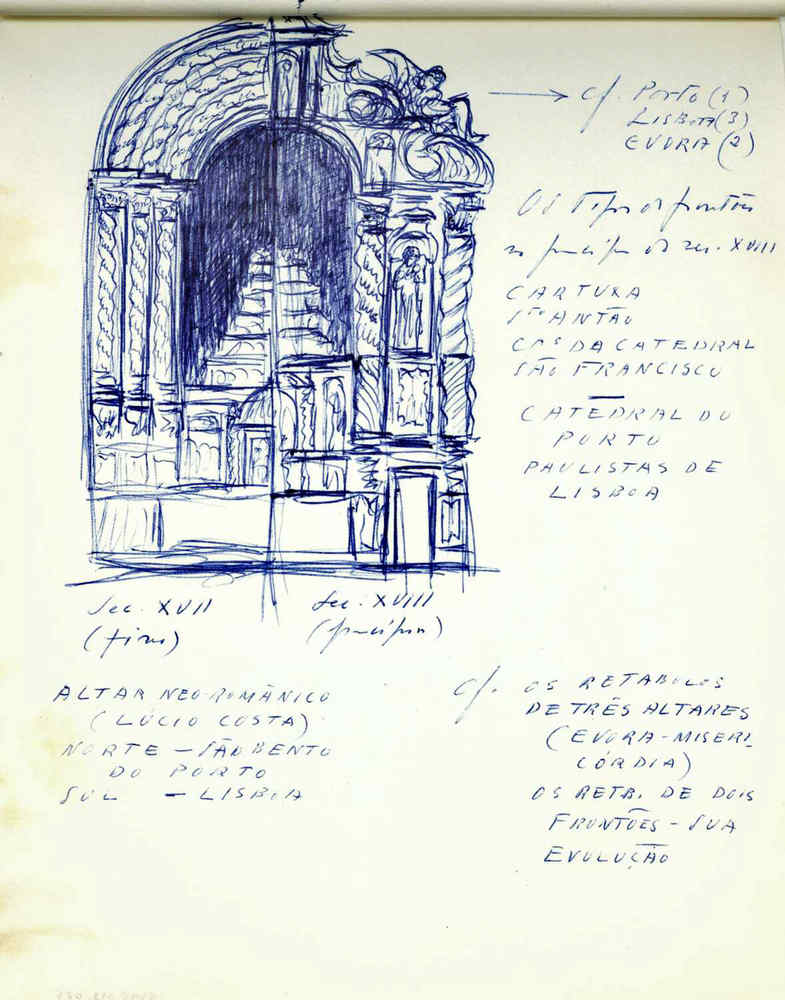 cf. Porto (1)
LISBOA (3)
EVORA (2)
Os tipos de frontões
no princípio do séc. XVIII
CARTUXA
Sto ANTÃO
CPª DA CATEDRAL
SÃO FRANCISCO
CATEDRAL DO
PORTO
PAULISTAS DE
LISBOA
Sec. XVII
(fins)
Sec. XVIII
(princípios)
ALTAR NEO-ROMÂNICO
(LÚCIO COSTA)
NORTE - SÃO BENTO
DO PORTO
SUL - LISBOA
cf. OS RETABULOS
DE TRÊS ALTARES
(EVORA-MISERI-
CÓRDIA)
OS RETB. DE DOIS
FRONTÕES - SUA
EVOLUÇÃO